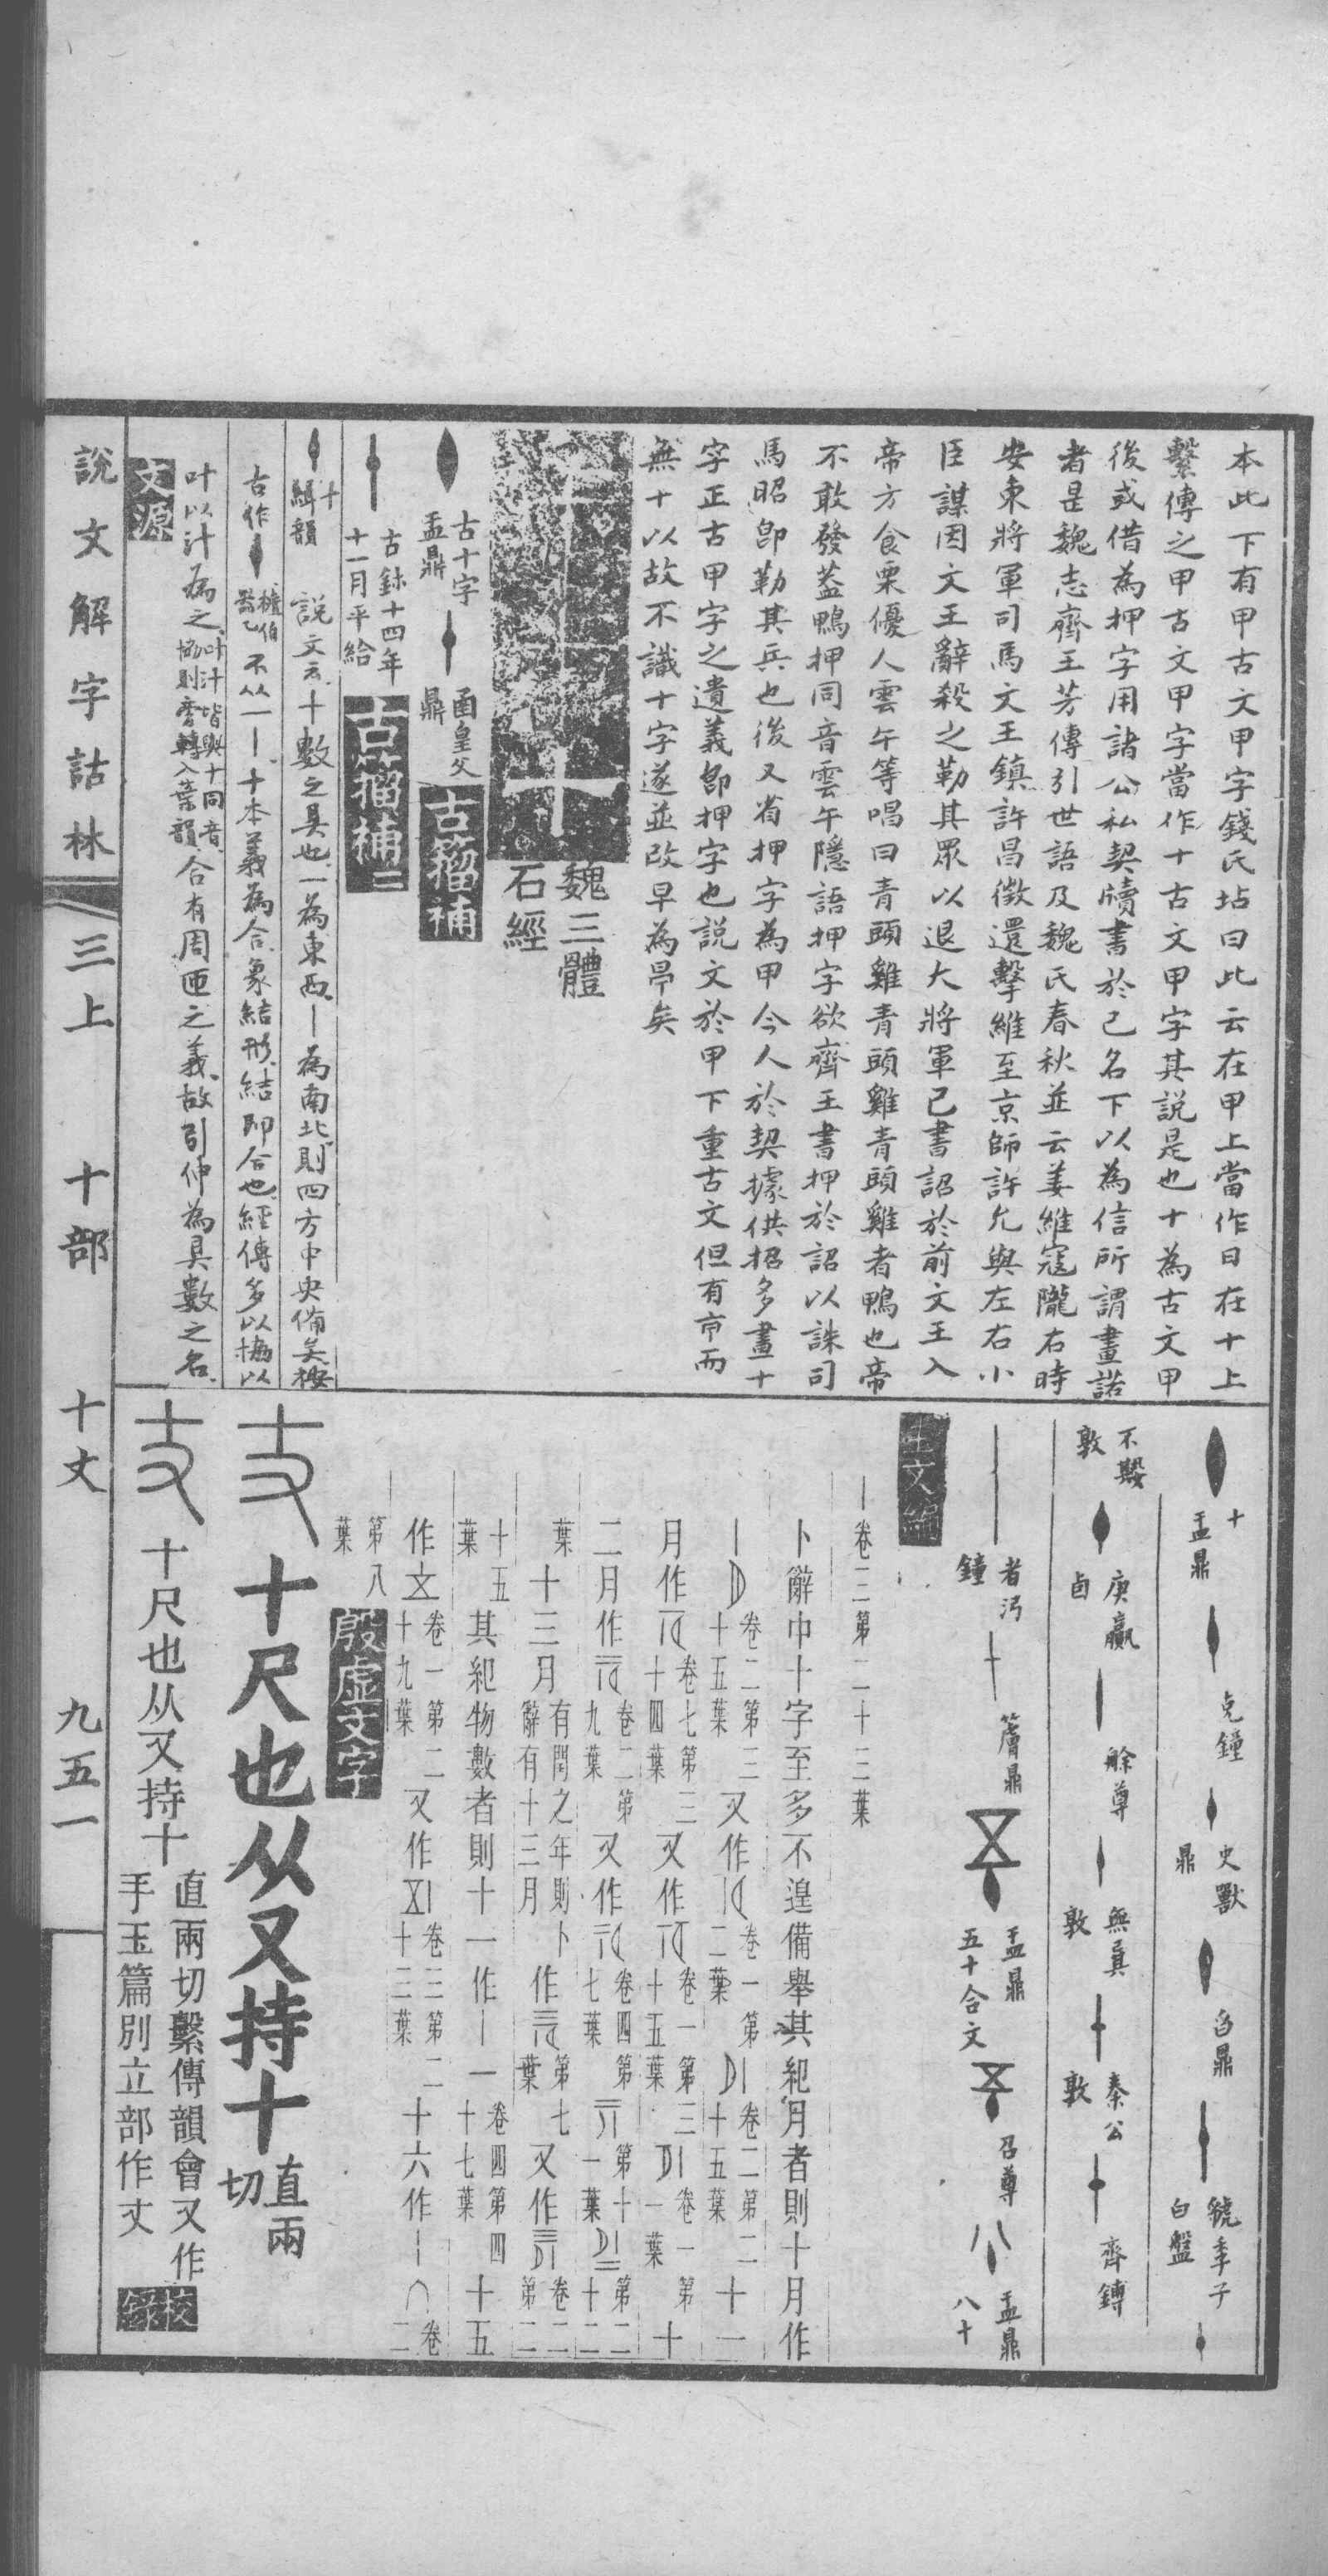 本此下有甲古文甲字錢氏坫曰此云在甲上當作日在十上
繫傳之甲古文甲字當作十古文甲字其説是也十為古文甲
後或借為押字用諸公私契牘書於己名下以為信所謂畫諾
者是魏志齊王芳傳引世語及魏氏春秋並云姜維寇隴右時
安東將軍司馬文王鎮許昌徵還擊維至京師許允與左右小
臣謀因文王辭殺之勒其眾以退大將軍已書詔於前文王入
帝方食栗優人雲午等唱曰青頭雞青頭雞青頭雞者鴨也帝
不敢發葢鴨押同音雲午隱語押字欲齊王書押於詔以誅司
馬昭卽勒其兵也後又省押字為甲今人於契據供招多畫十
字正古甲字之遺義卽押字也説文於甲下重古文但有𠇚而
無十以故不識十字遂並改早為𣅊矣
魏三體
石經
古十字
盂鼎
函皇父
鼎
古籀補
古鉢十四年
十一月平給
古籀補二
十
緝韻
説文云十數之具也一為東西丨為南北則四方中央備矣按
古作
不从一丨十本義為合象結形結即合也經傳多以協以
叶以汁為之
叶汁皆與十同音
協則旁轉入葉韻
合有周匝之義故引伸為具數之名
文源
十
盂鼎
克鐘
史獸
鼎
舀鼎
虢季子
白盤
不𡢁
敦
庚贏
卣
艅尊
無㠱
敦
秦公
敦
齊鎛
者汈
鐘
䈞鼎
盂鼎
五十合文
召尊
盂鼎
八十
金文編
丨卷三第二十三葉
卜辭中十字至多不遑備舉其紀月者則十月作
卷二第三
十五葉
又作
卷一第
二葉
卷二第二
十五葉
十一
月作
卷七第三
十四葉
又作
卷一第
十五葉
卷一第
一葉
十
二月作
卷二第
九葉
又作
卷四第
七葉
第十
一葉
第二
十二
葉
十三月
有閏之年則卜
辭有十三月
作
第七
葉
又作
卷二
第二
十五
葉
其紀物數者則十一作丨一
卷四第四
十七葉
十五
作
卷一第二
十九葉
又作
卷三第二
十三葉
十六作丨∩
卷二
第八
葉
殷虛文字
𠀋
十尺也从又持十
直兩
切
𠀋
十尺也从又持十
直兩切繫傳韻會又作
手玉篇別立部作丈
校錄
説文解字詁林
三上
十部
十丈
九五一